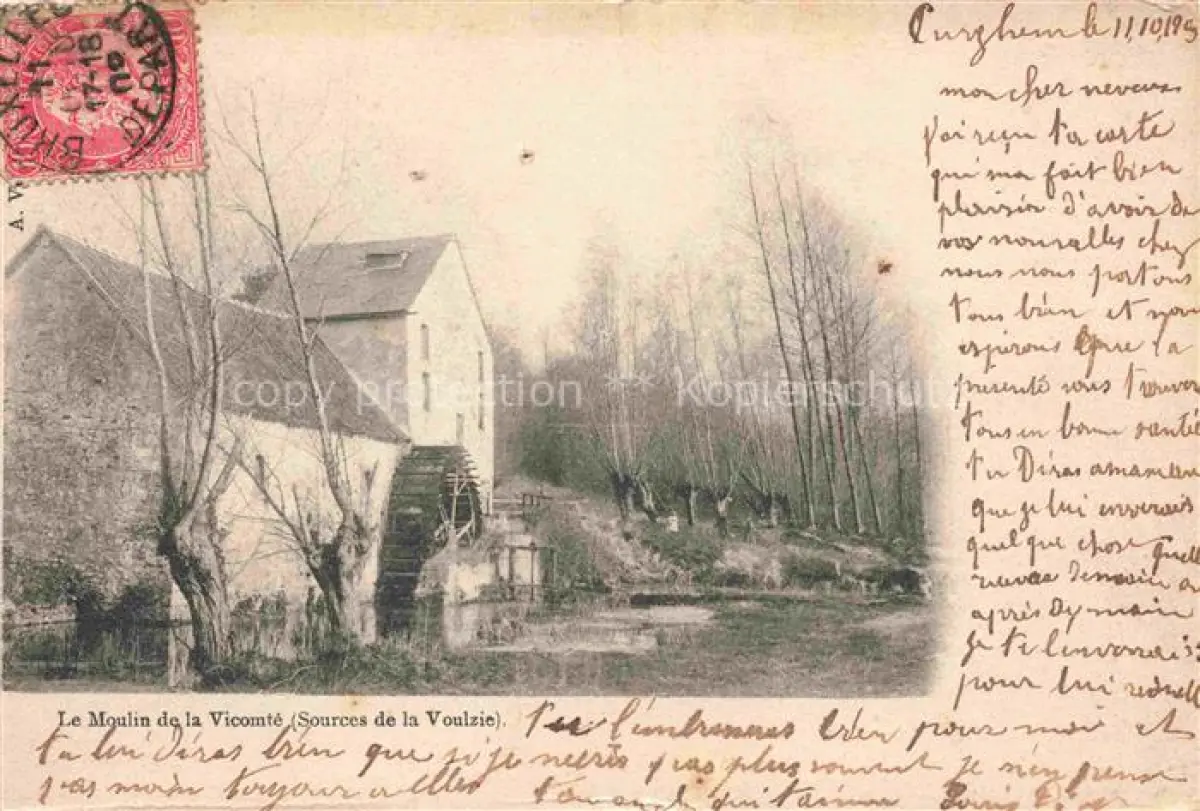 BRUXELLES
11
17-18
DEPART
A. W
copy protection ** Kopierschutz
Curghem le 11,10,190
mon cher neveux
j'ai reçu ta carte
qui ma fait bien
plaisir d'avoir de
vos nouvalles chez
nous nous portons
tous bien et nous
espérons que la
présente vous trouvera
tous en bonne santée
tu Diras a maman
que je lui enverais
quelque chose quelle
demain ou
après Dy main
je te l'enverrais
pour lui
Le Moulin de la Vicomté (Sources de la Voulzie).
Tu l'embrasseras bien pour moi et
ta lui Diras bien que si je n'ecris pas plus souvent je n'en pense
pas moin toujour a elles
ta qui t'aime Louis